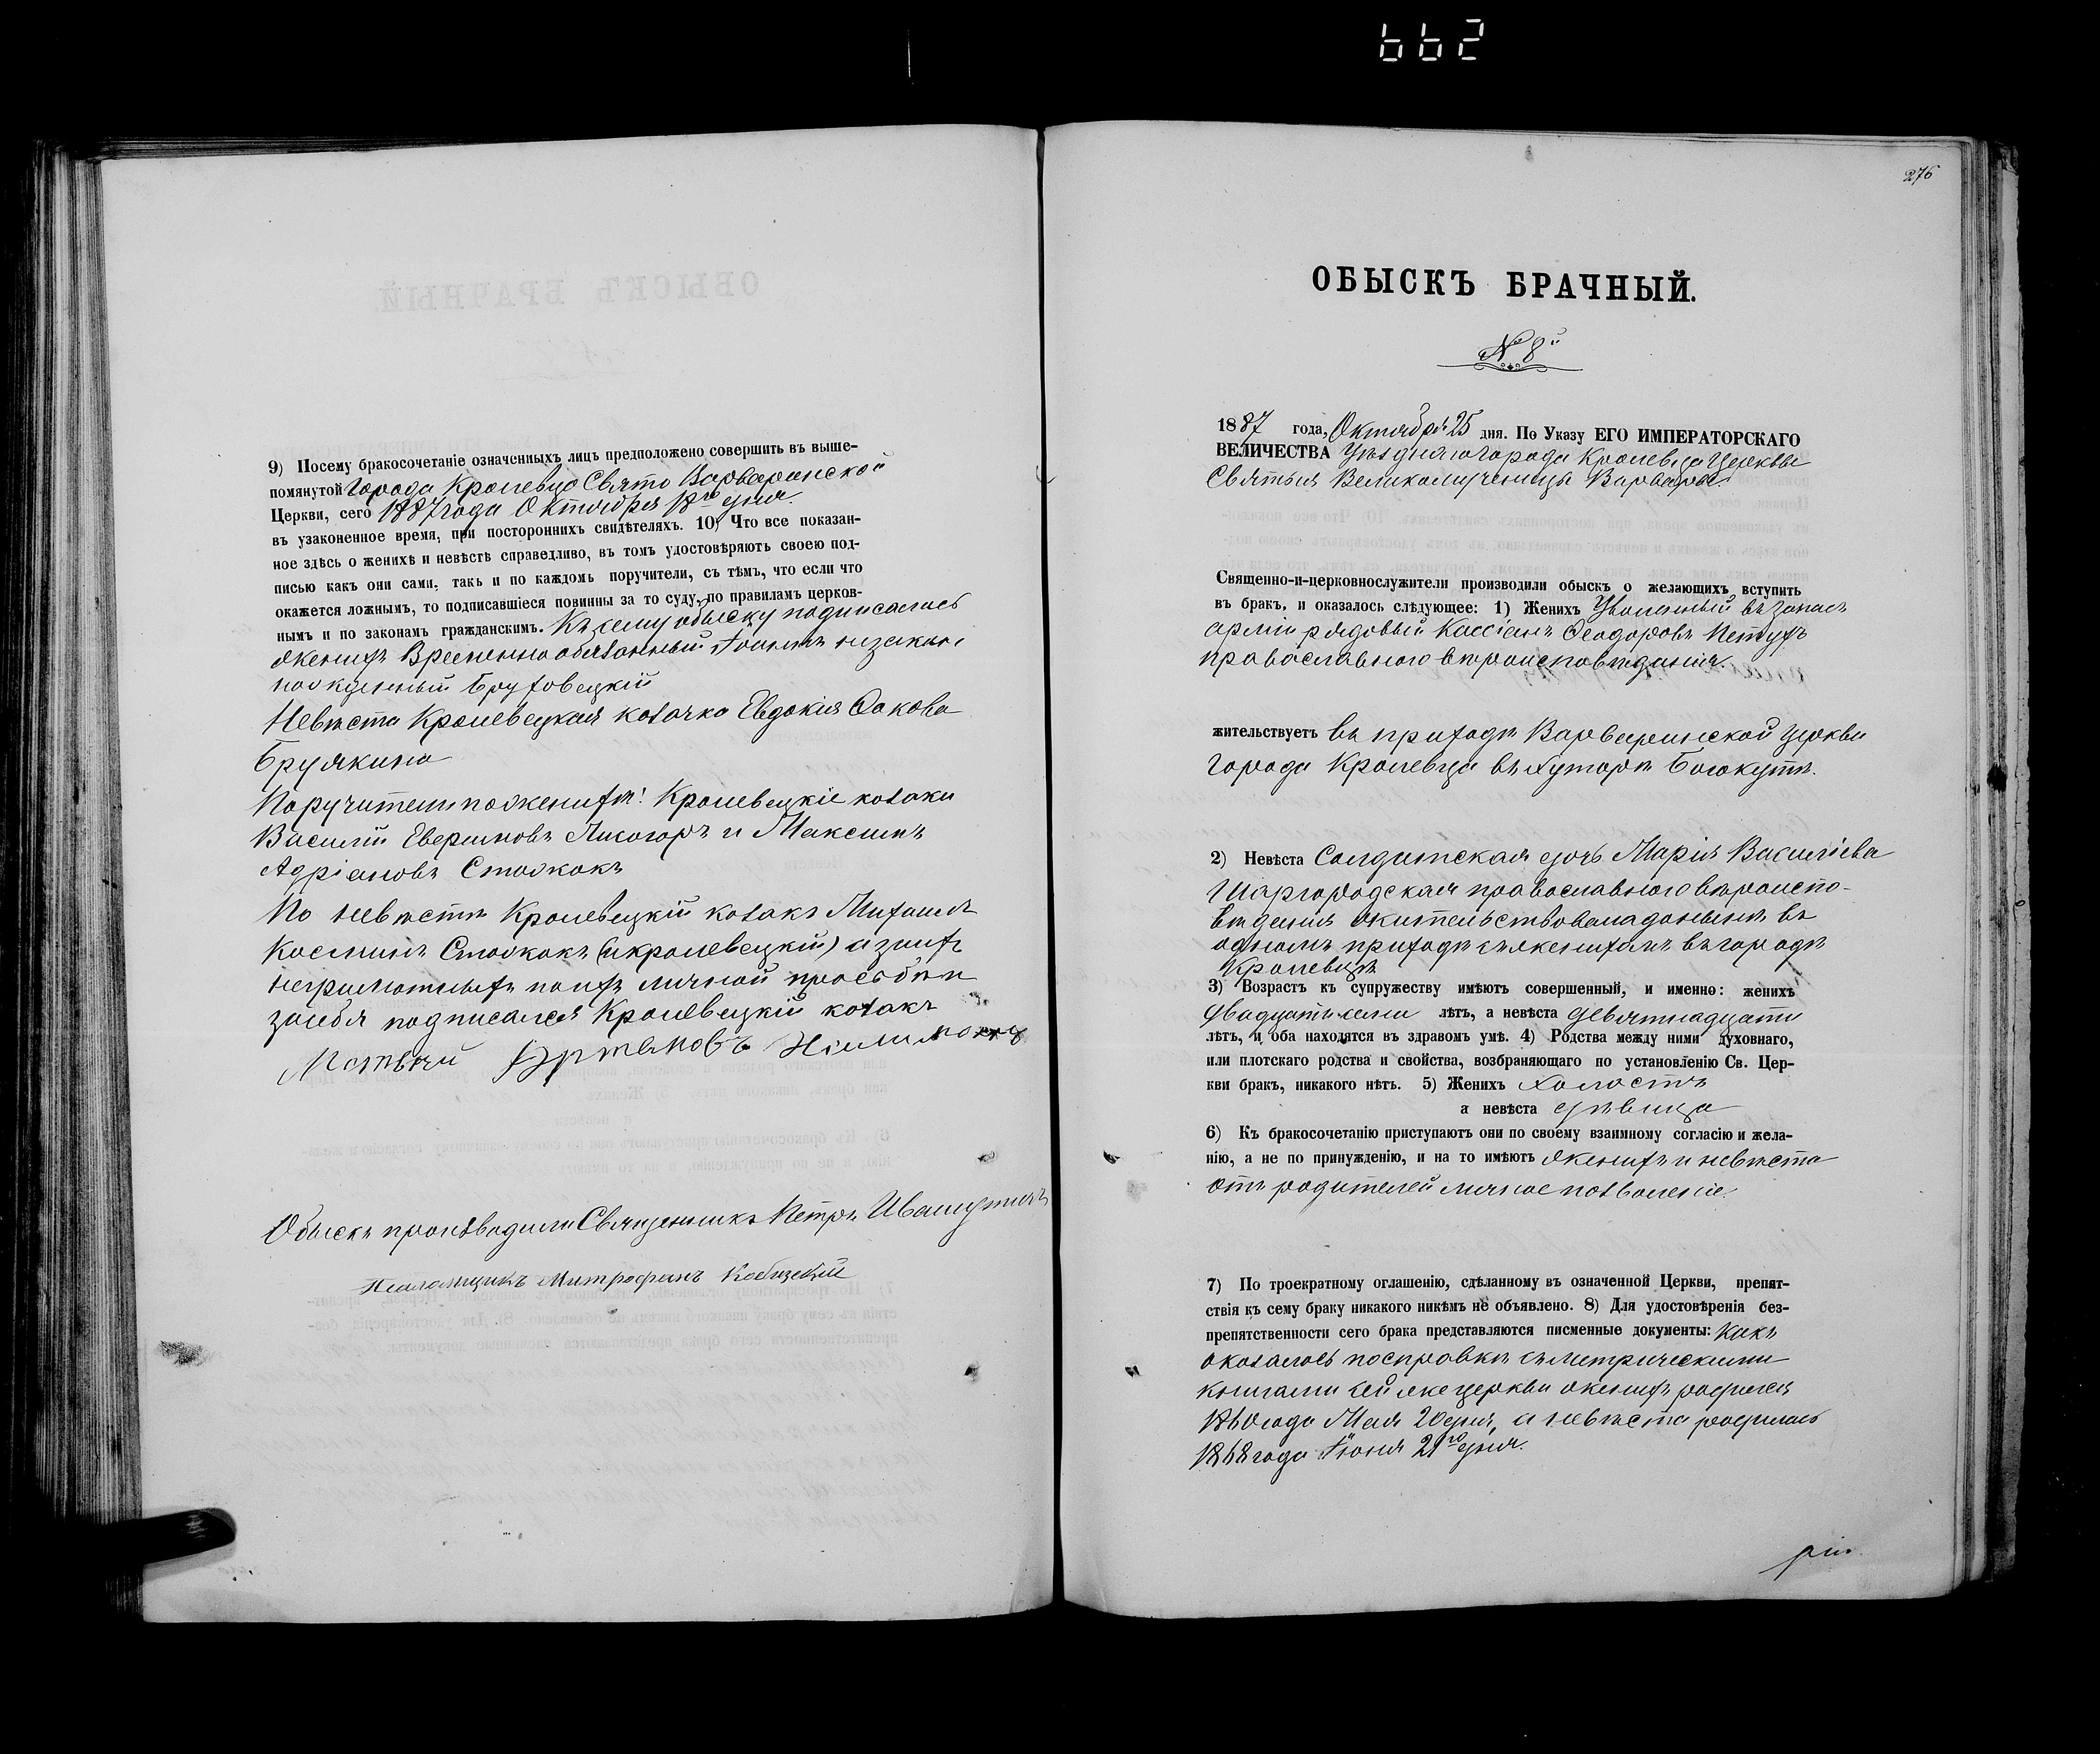 662
9) Посему бракосочетаніе означенныхъ лицъ предположено совершить въ выше-
помянутой Города Кролевца Свято Варваринской
Церкви, сего 1887 года Октября 18го дня.
въ узаконенное время, при постороннихъ свидѣтеляхъ. 10) Что все показан-
ное здѣсь о женихѣ и невѣстѣ справедливо, въ томъ удостовѣряютъ своею под-
писью какъ они сами, такъ и по каждомъ поручители, съ тѣмъ, что если что
окажется ложнымъ, то подписавшіеся повинны за то суду, по правиламъ церков-
нымъ и по законамъ гражданскимъ. Къ сему обыску подписались
женихъ Временно обязанный незакон
норожденный
Невѣста Кролевецкая козачка Евдокія
Поручители по женихѣ: Кролевецкіе козаки
Василій Лисогоръ и Максимъ
Адріановъ
По невѣстѣ Кролевецкій козакъ Михаилъ
Косминъ (Кролевецкій) а за нихъ
неграмотныхъ по ихъ личной прозьбѣ и
за себя подписался Кролевецкій козакъ
Матвѣй Артемовъ
Обыскъ производили Священникъ Петръ
Псаломщикъ Митрофанъ
276
ОБЫСКЪ БРАЧНЫЙ.
№ 8й
1887 года, Октября 25 дня. По Указу ЕГО ИМПЕРАТОРСКАГО
ВЕЛИЧЕСТВА Уѣзднаго города Кролевца Церквы
Святыя Великомученицы Варвары
Священно-и-церковнослужители производили обыскъ о желающихъ вступить
въ бракъ, и оказалось слѣдующее: 1) Женихъ Уволенный въ запасъ
арміи рядовый Кассіанъ Феодоровъ Петухъ
православнаго вѣроисповѣданія.
жительствуетъ въ приходѣ Варваринской церкви
города Кролевца въ хуторѣ
2) Невѣста Солдатская дочь Марія Василіева
Шаргородская православнаго вѣроиспо-
вѣданія жительствовала донынѣ въ
одномъ приходѣ съ женихомъ въ городѣ
Кролевцѣ
3) Возрастъ къ супружеству имѣютъ совершенный, и именно: женихъ
двадцать семи лѣтъ, а невѣста девятнадцати
лѣтъ, и оба находятся въ здравомъ умѣ. 4) Родства между ними духовнаго,
или плотскаго родства и свойства, возбраняющаго по установленію Св. Цер-
кви бракъ, никакого нѣтъ. 5) Женихъ холостъ
а невѣста дѣвица
6) Къ бракосочетанію приступаютъ они по своему взаимному согласію и жела-
нію, а не по принужденію, и на то имѣютъ женихъ и невѣста
отъ родителей личное позволеніе.
7) По троекратному оглашенію, сдѣланному въ означенной Церкви, препят-
ствія къ сему браку никакого никѣмъ не объявлено. 8) Для удостовѣренія без-
препятственности сего брака представляются писменные документы: Какъ
оказалось по справкѣ съ метрическими
книгами сей же церкви женихъ родился
1860 года Мая 20 дня, а невѣста родилась
1868 года Іюня 21го дня.